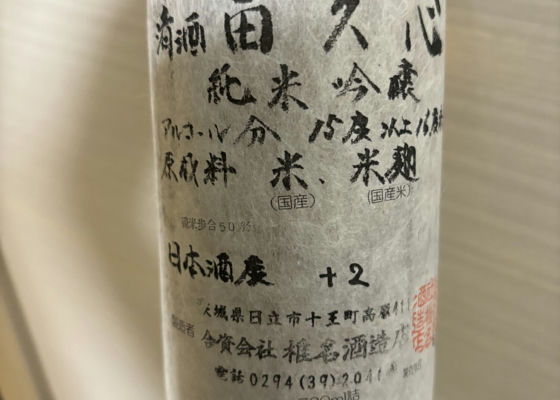 清酒 富久心
純米吟醸
アルコール分 15度以上16度
原材料 米、米麹
(国産) (国産米)
精米歩合50%
日本酒度 +2
茨城県日立市十王町高原411
製造者 合資会社 椎名酒造店
電話 0294(39)2041
720ml詰